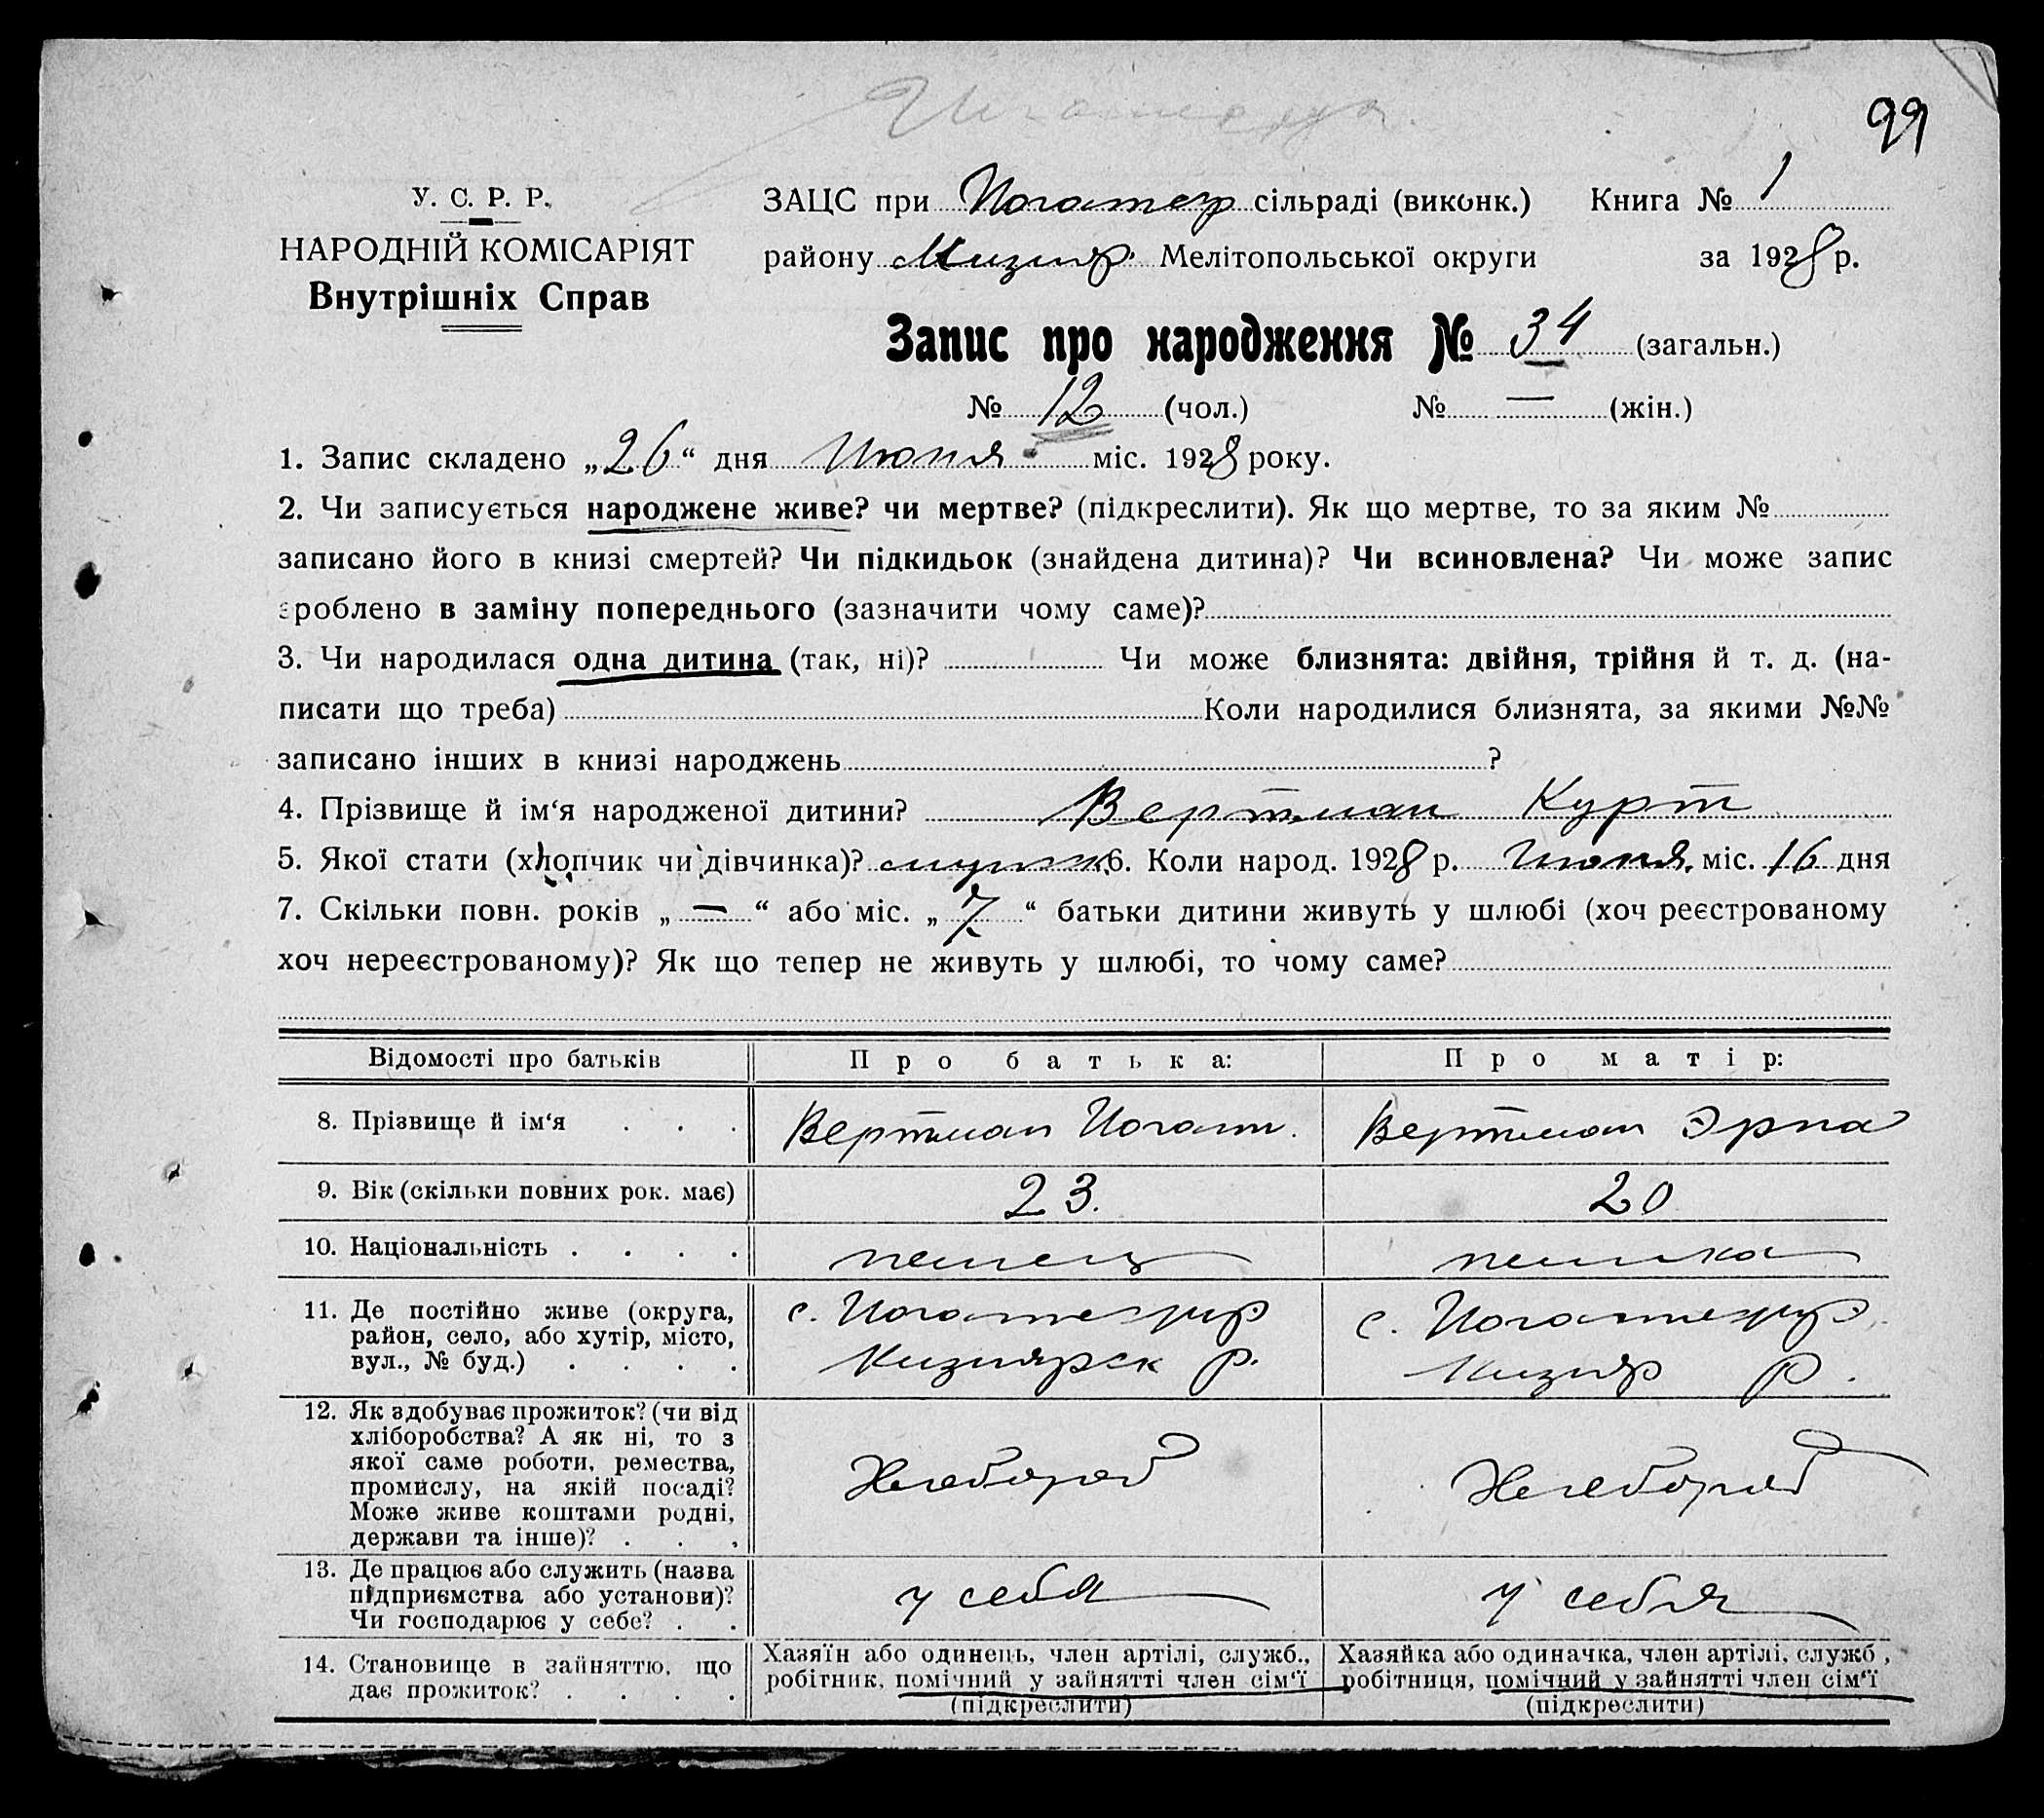 99
У. С. Р. Р.
НАРОДНІЙ КОМІСАРІЯТ
Внутрішніх Справ
ЗАЦС при Йогатер сільраді (виконк.) Книга № 1
району Мизияр. Мелітопольської округи за 1928 р.
Запис про народження № 34 (загальн.)
№ 12 (чол.) № — (жін.)
1. Запис складено „26“ дня Июня міс. 1928 року.
2. Чи записується народжене живе? чи мертве? (підкреслити). Як що мертве, то за яким №
записано його в книзі смертей? Чи підкидьок (знайдена дитина)? Чи всиновлена? Чи може запис
зроблено в заміну попереднього (зазначити чому саме)?
3. Чи народилася одна дитина (так, ні)? Чи може близнята: двійня, трійня й т. д. (на-
писати що треба) Коли народилися близнята, за якими №№
записано інших в книзі народжень ?
4. Прізвище й ім‘я народженої дитини? Вертман Курт
5. Якої стати (хлопчик чи дівчинка)? мужск 6. Коли народ. 1928 р. Июня. міс. 16 дня
7. Скільки повн. років „—“ або міс. „7“ батьки дитини живуть у шлюбі (хоч реєстрованому
хоч нереєстрованому)? Як що тепер не живуть у шлюбі, то чому саме?
Відомості про батьків Про батька: Про матір:
8. Прізвище й ім‘я . . . Вертман Иоган. Вертман Эрна
9. Вік (скільки повних рок. має) 23. 20
10. Національність . . . . немец немка
11. Де постійно живе (округа,
район, село, або хутір, місто,
вул., № буд.) . . . .
с.
р.
с.
р.
12. Як здобуває прожиток? (чи від
хліборобства? А як ні, то з
якої саме роботи, ремества,
промислу, на якій посаді?
Може живе коштами родні,
держави та інше)? . . .
Хлебороб
Хлебороб
13. Де працює або служить (назва
підприємства або установи)?
Чи господарює у себе? . .
у себя
у себя
14. Становище в зайняттю, що
дає прожиток? . . . .
Хазяїн або одинець, член артілі, служб.,
робітник, помічний у зайнятті член сім‘ї
(підкреслити)
Хазяйка або одиначка, член артілі, служб.,
робітниця, помічний у зайнятті член сім‘ї
(підкреслити)